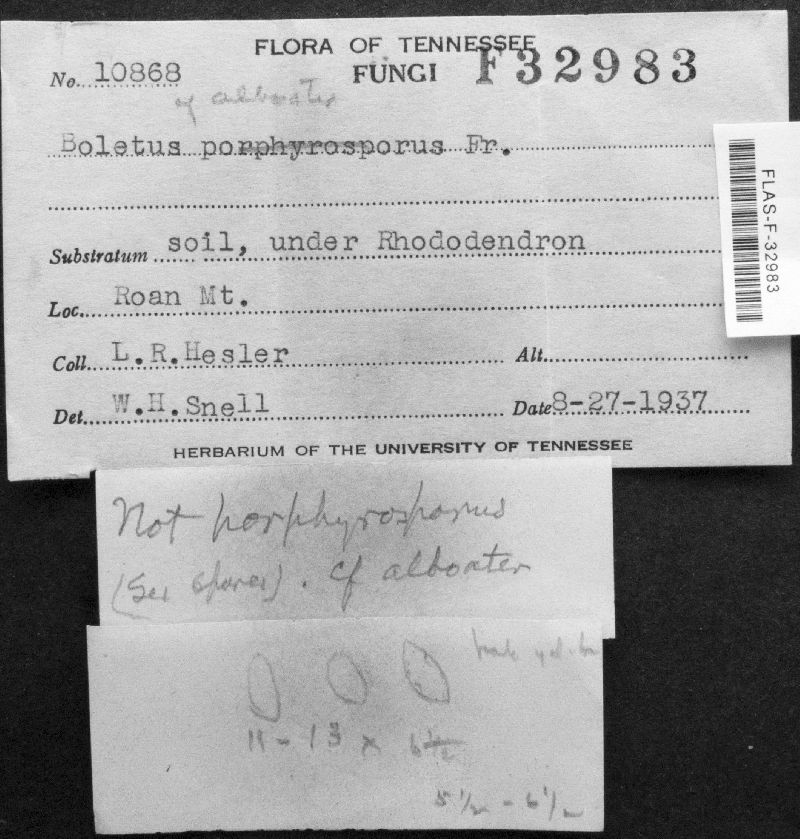 FLORA OF TENNESSEE
No. 10868 FUNGI F32983
cf alboater
Boletus porphyrosporus Fr.
Substratum soil, under Rhododendron
Loc. Roan Mt.
Coll. L.R.Hesler Alt.
Det. W.H.Snell Date 8-27-1937
HERBARIUM OF THE UNIVERSITY OF TENNESSEE
FLAS-F-32983
Not porphyrosporus
(See spores). cf alboater
11-13 x 6½
5 1/2 - 6 1/2